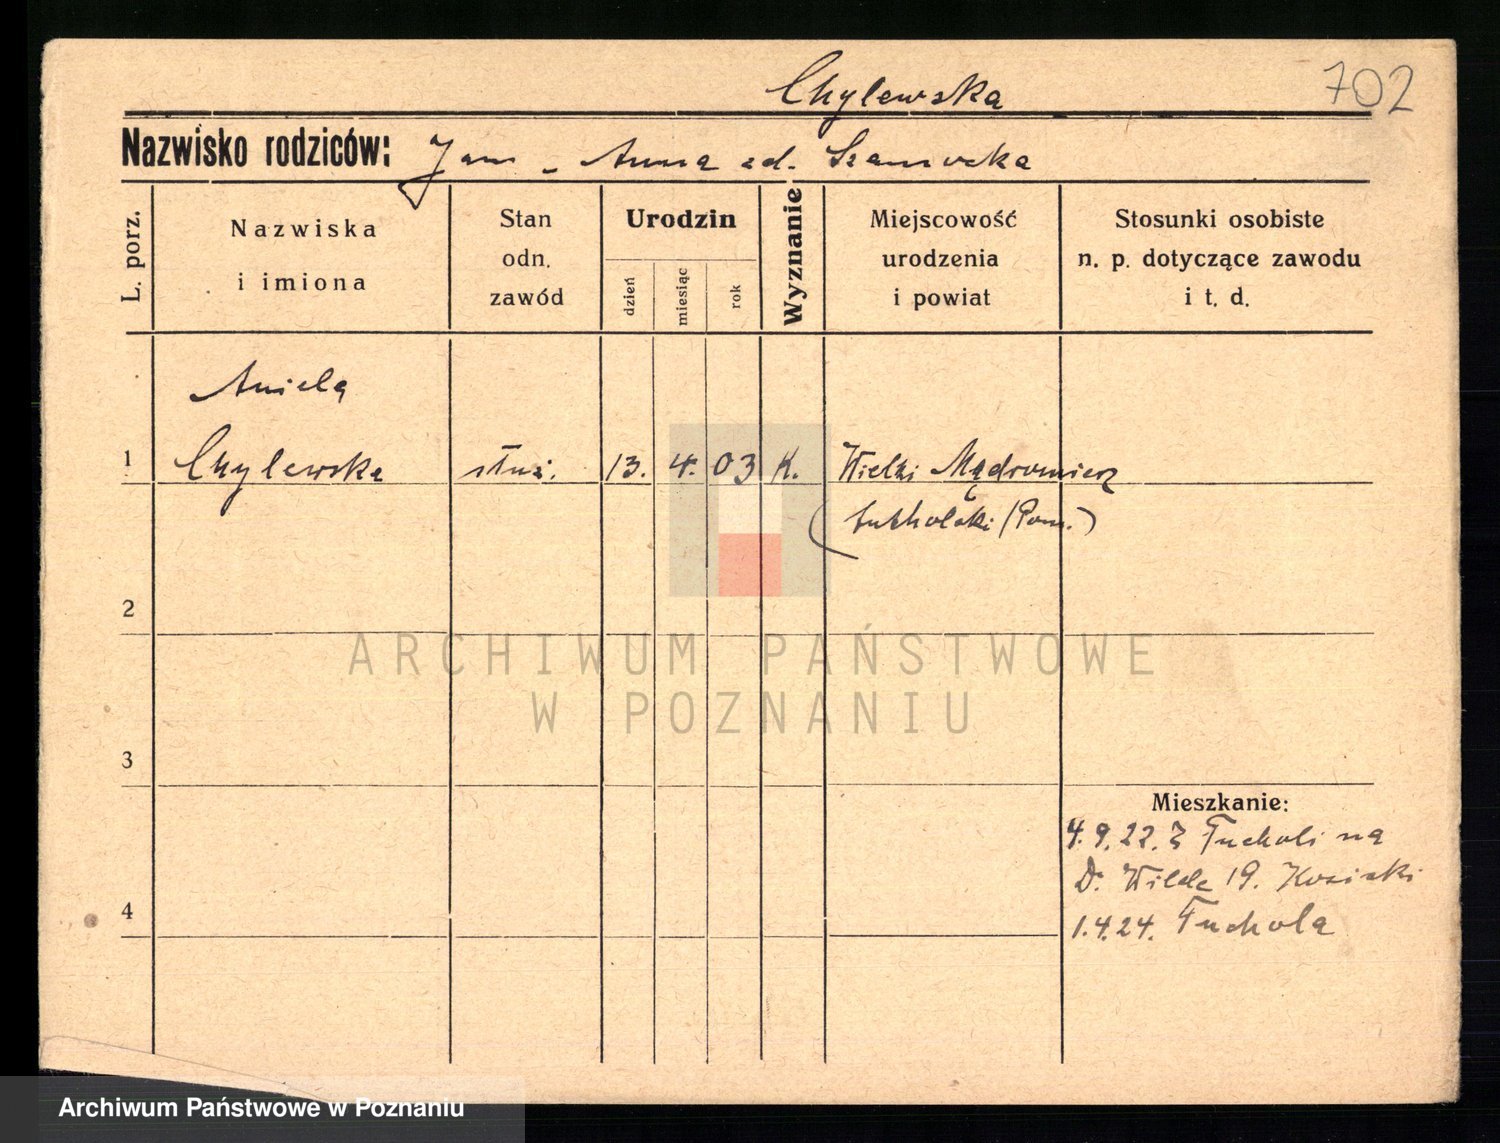 Chylewska
702
Nazwisko rodziców: Jan - Anna zd.
L. porz.
Nazwiska
i imiona
Stan
odn.
zawód
Urodzin
dzień
miesiąc
rok
Wyznanie
Miejscowość
urodzenia
i powiat
Stosunki osobiste
n. p. dotyczące zawodu
i t. d.
Aniela
1 Chylewska służ. 13. 4. 03 K. Wielki Mędromierz
(tucholski (Pom.)
2
ARCHIWUM PAŃSTWOWE
W POZNANIU
3
Mieszkanie:
4. 9. 22. z Tucholi na
D. Wilda 19.
4
1.4.24. Tuchola
Archiwum Państwowe w Poznaniu